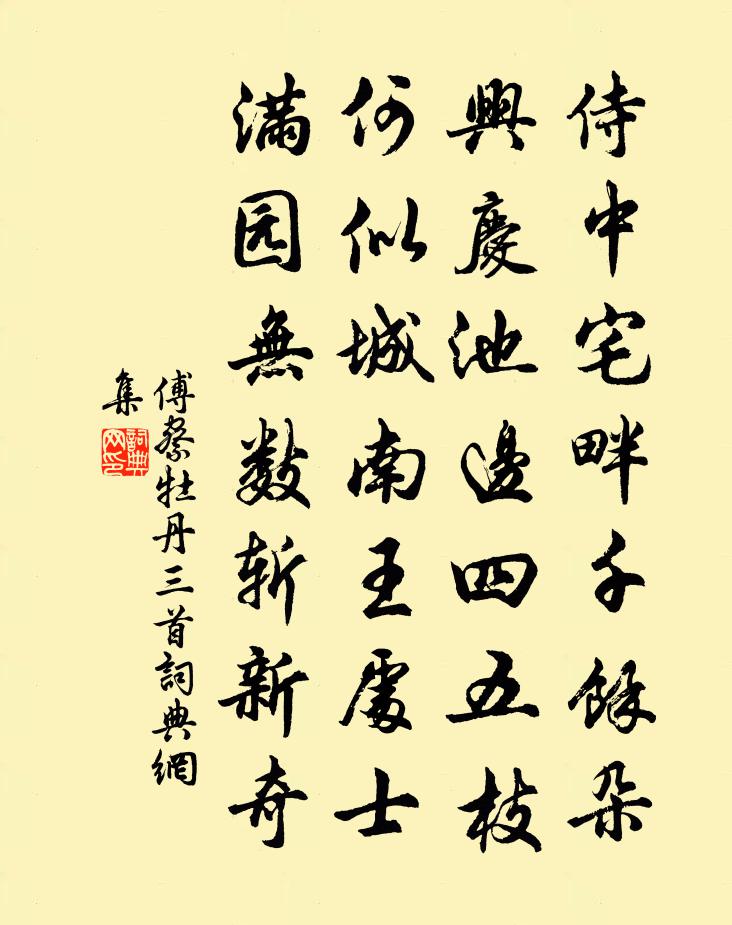 侍中宅畔千餘朵
興慶池邊四五枝
何似城南王處士
满园無数斩新奇
傅察牡丹三首詞典網
集
詞典
网印